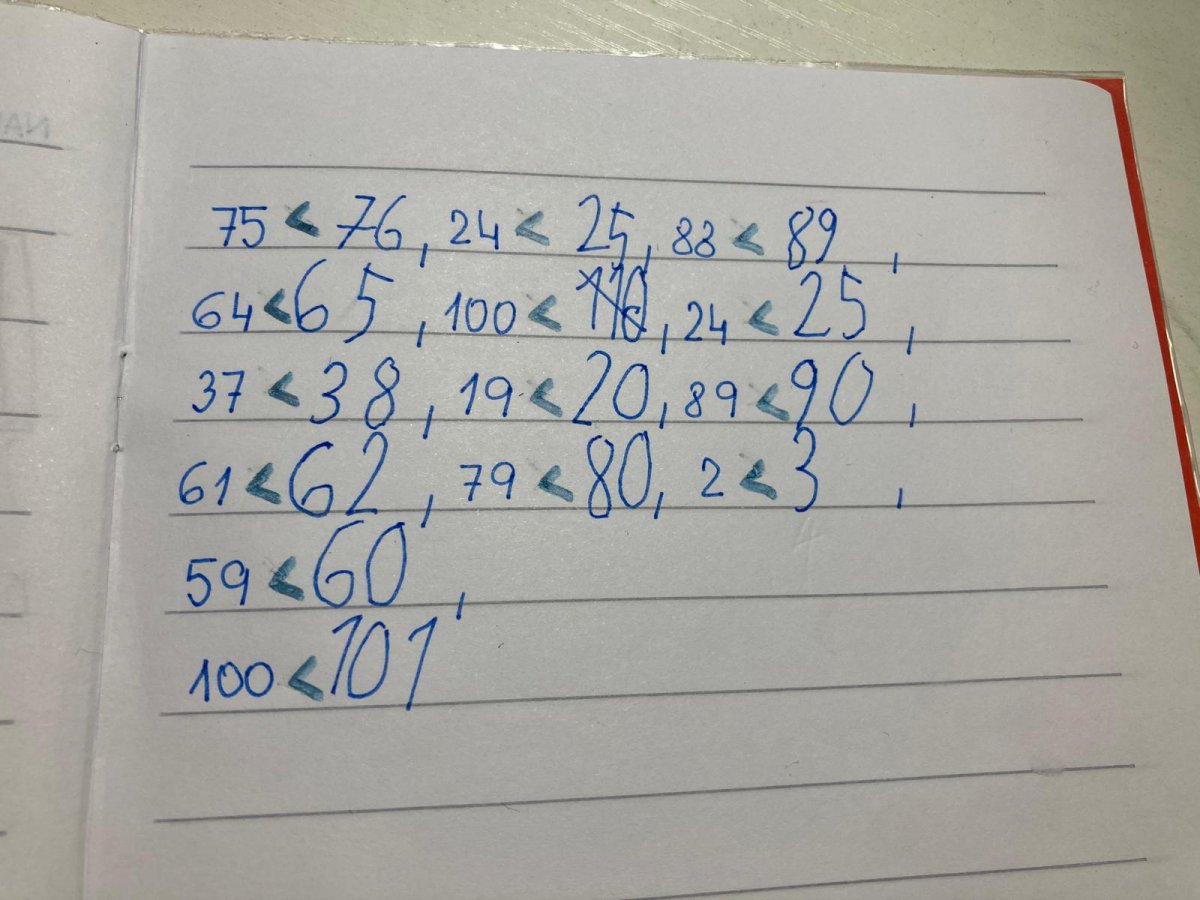 75 < 76, 24 < 25, 88 < 89,
64 < 65, 100 < 110, 24 < 25,
37 < 38, 19 < 20, 89 < 90,
61 < 62, 79 < 80, 2 < 3,
59 < 60,
100 < 101